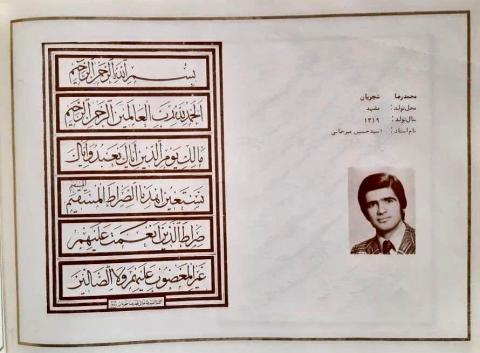 بسم الله الرحمن الرحیم
الحمد لله رب العالمین الرحمن الرحیم
مالك یوم الدین ایاك نعبد و ایاك
نستعین اهدنا الصراط المستقیم
صراط الذین انعمت علیهم
غیر المغضوب علیهم ولا الضالین
محمدرضا شجریان
محل تولد : مشهد
سال تولد : ۱۳۱۹
نام استاد : سیدحسین میرخانی